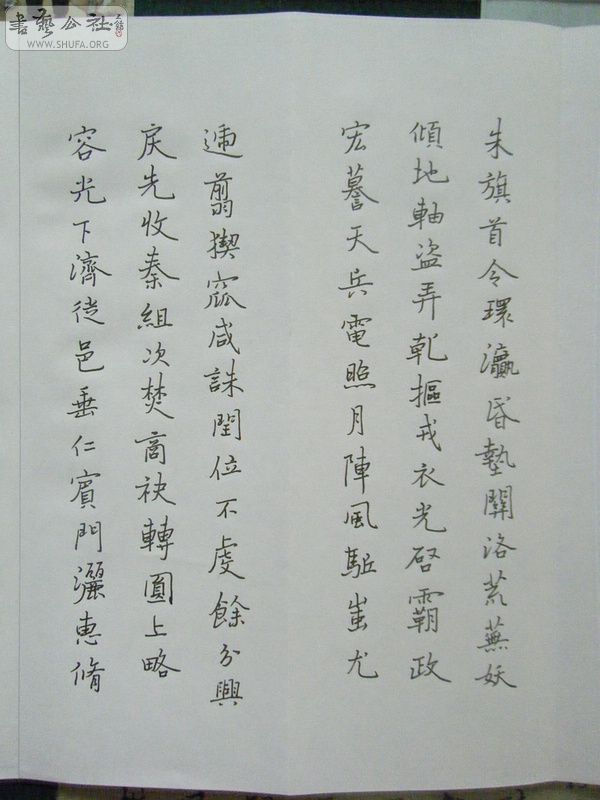 朱旗首令環瀛昏墊關洛荒蕪妖
傾地軸盜弄乾樞戎衣光啓霸政
宏謩天兵電照月陣風駈蚩尤
遄翦揳窳咸誅閏位不虔餘分興
戾先收秦組次焚商袂轉圓上略
容光下濟徙邑垂仁賓門灑惠脩
書藝公社
WWW.SHUFA.ORG